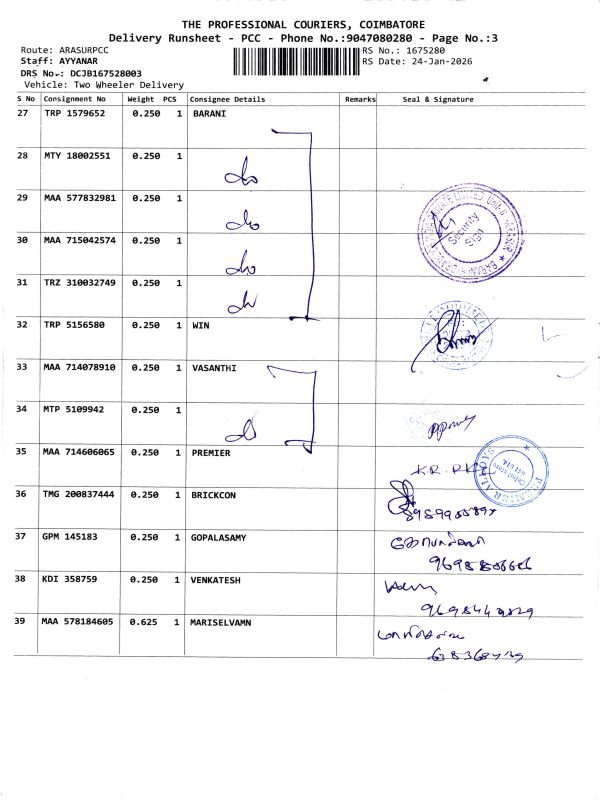 THE PROFESSIONAL COURIERS, COIMBATORE
Delivery Runsheet - PCC - Phone No.:9047080280 - Page No.:3
Route: ARASURPCC
RS No.: 1675280
Staff: AYYANAR
RS Date: 24-Jan-2026
DRS No.: DCJB167528003
Vehicle: Two Wheeler Delivery
S No Consignment No Weight PCS Consignee Details Remarks Seal & Signature
27 TRP 1579652 0.250 1 BARANI
28 MTY 18002551 0.250 1
29 MAA 577832981 0.250 1
30 MAA 715042574 0.250 1
Security
Sign
31 TRZ 310032749 0.250 1
32 TRP 5156580 0.250 1 WIN
33 MAA 714078910 0.250 1 VASANTHI
34 MTP 5109942 0.250 1
35 MAA 714606065 0.250 1 PREMIER
36 TMG 200837444 0.250 1 BRICKCON
37 GPM 145183 0.250 1 GOPALASAMY
38 KDI 358759 0.250 1 VENKATESH
39 MAA 578184605 0.625 1 MARISELVAMN